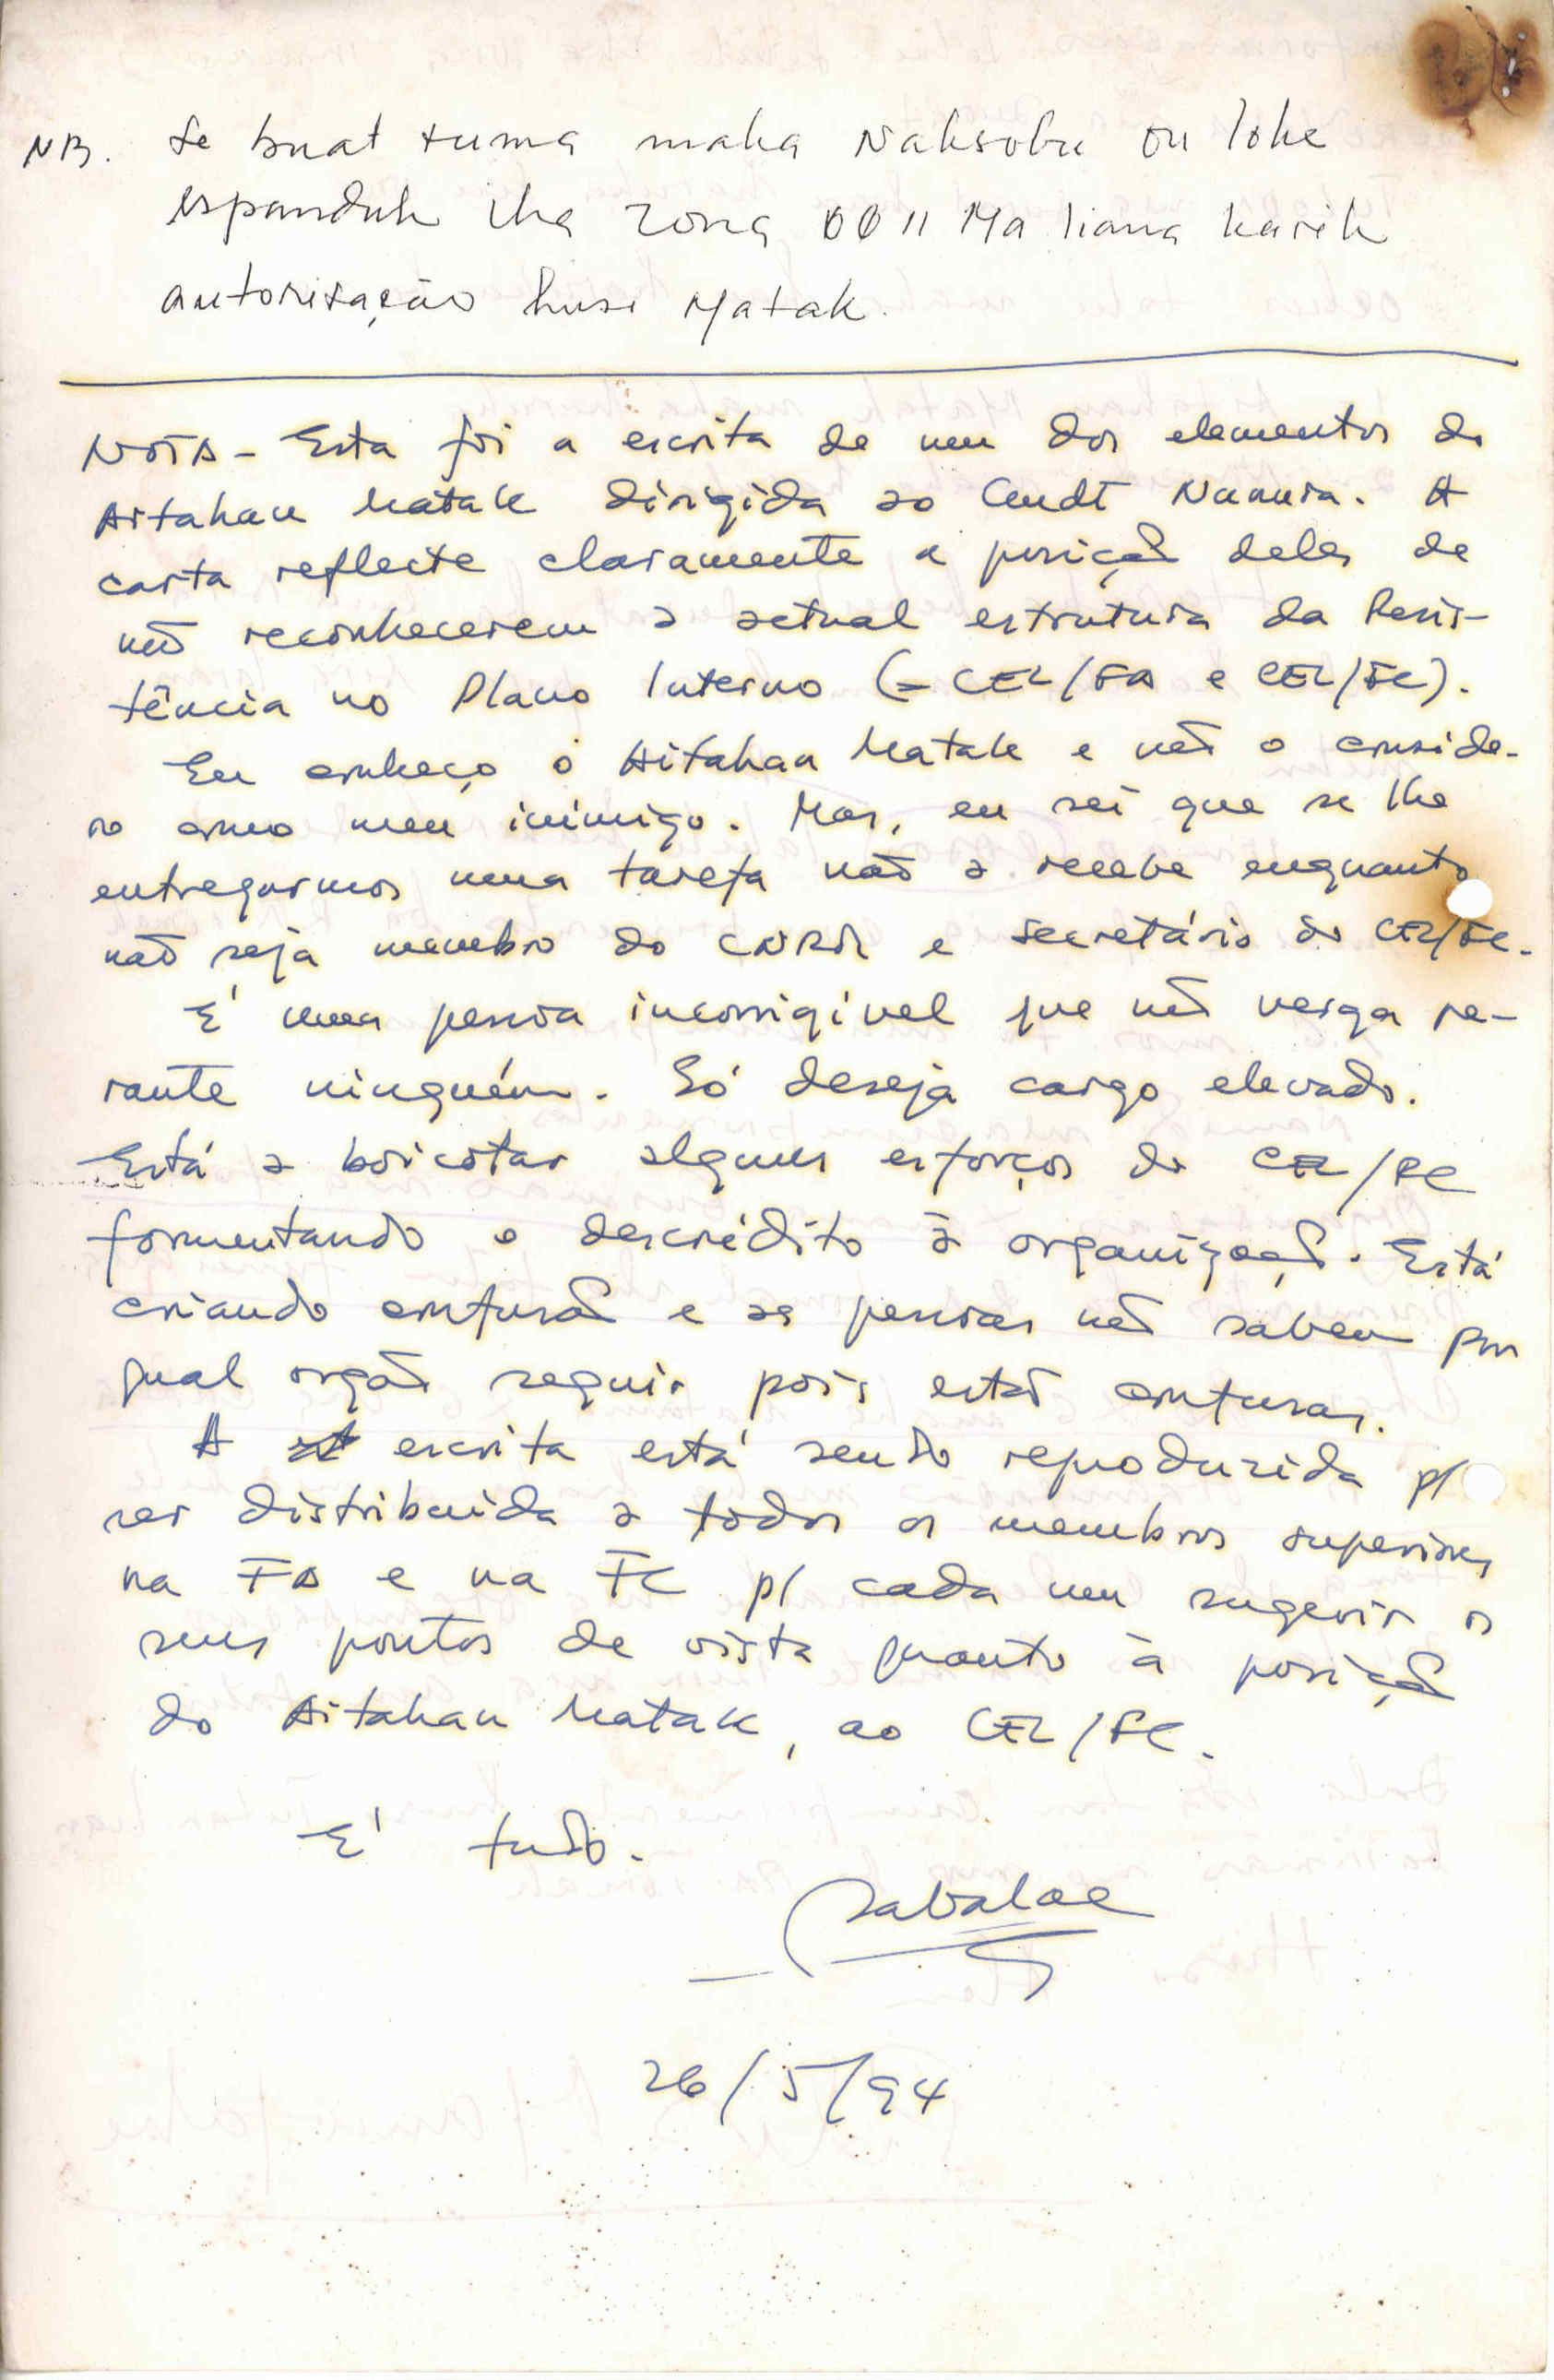 NB. Se buat ruma maka Naksobu ou loke
espanduk iha zona 0011 Maliana karik
autorisação husi Matak.
NOTA - Esta foi a escrita de um dos elementos do
Aitahan Matak dirigida ao Cmdt Nunura. A
carta reflecte claramente a posição deles de
não reconhecerem a actual estrutura da Resis-
tência no Plano Interno (= CEL/FA e CEL/FC).
Eu conheço o Aitahan Matak e não o conside-
ro como meu inimigo. Mas, eu sei que se lhe
entregarmos uma tarefa não a recebe enquanto
não seja membro do CNRM e secretário do CEL/FC.
É uma pessoa incorrigível que não verga pe-
rante ninguém. Só deseja cargo elevado.
Está a boicotar alguns esforços do CEL/FC
formentando o descrédito à organização. Está
criando confusão e as pessoas não sabem por
qual orgão seguir pois estão confusas.
A escrita está sendo reproduzida p/
ser distribuida a todos os membros superiores
na FA e na FC p/ cada um sugerir os
seus pontos de vista quanto à posição
do Aitahan Matak, ao CEL/FC.
É tudo.
Sabalae
26/5/94